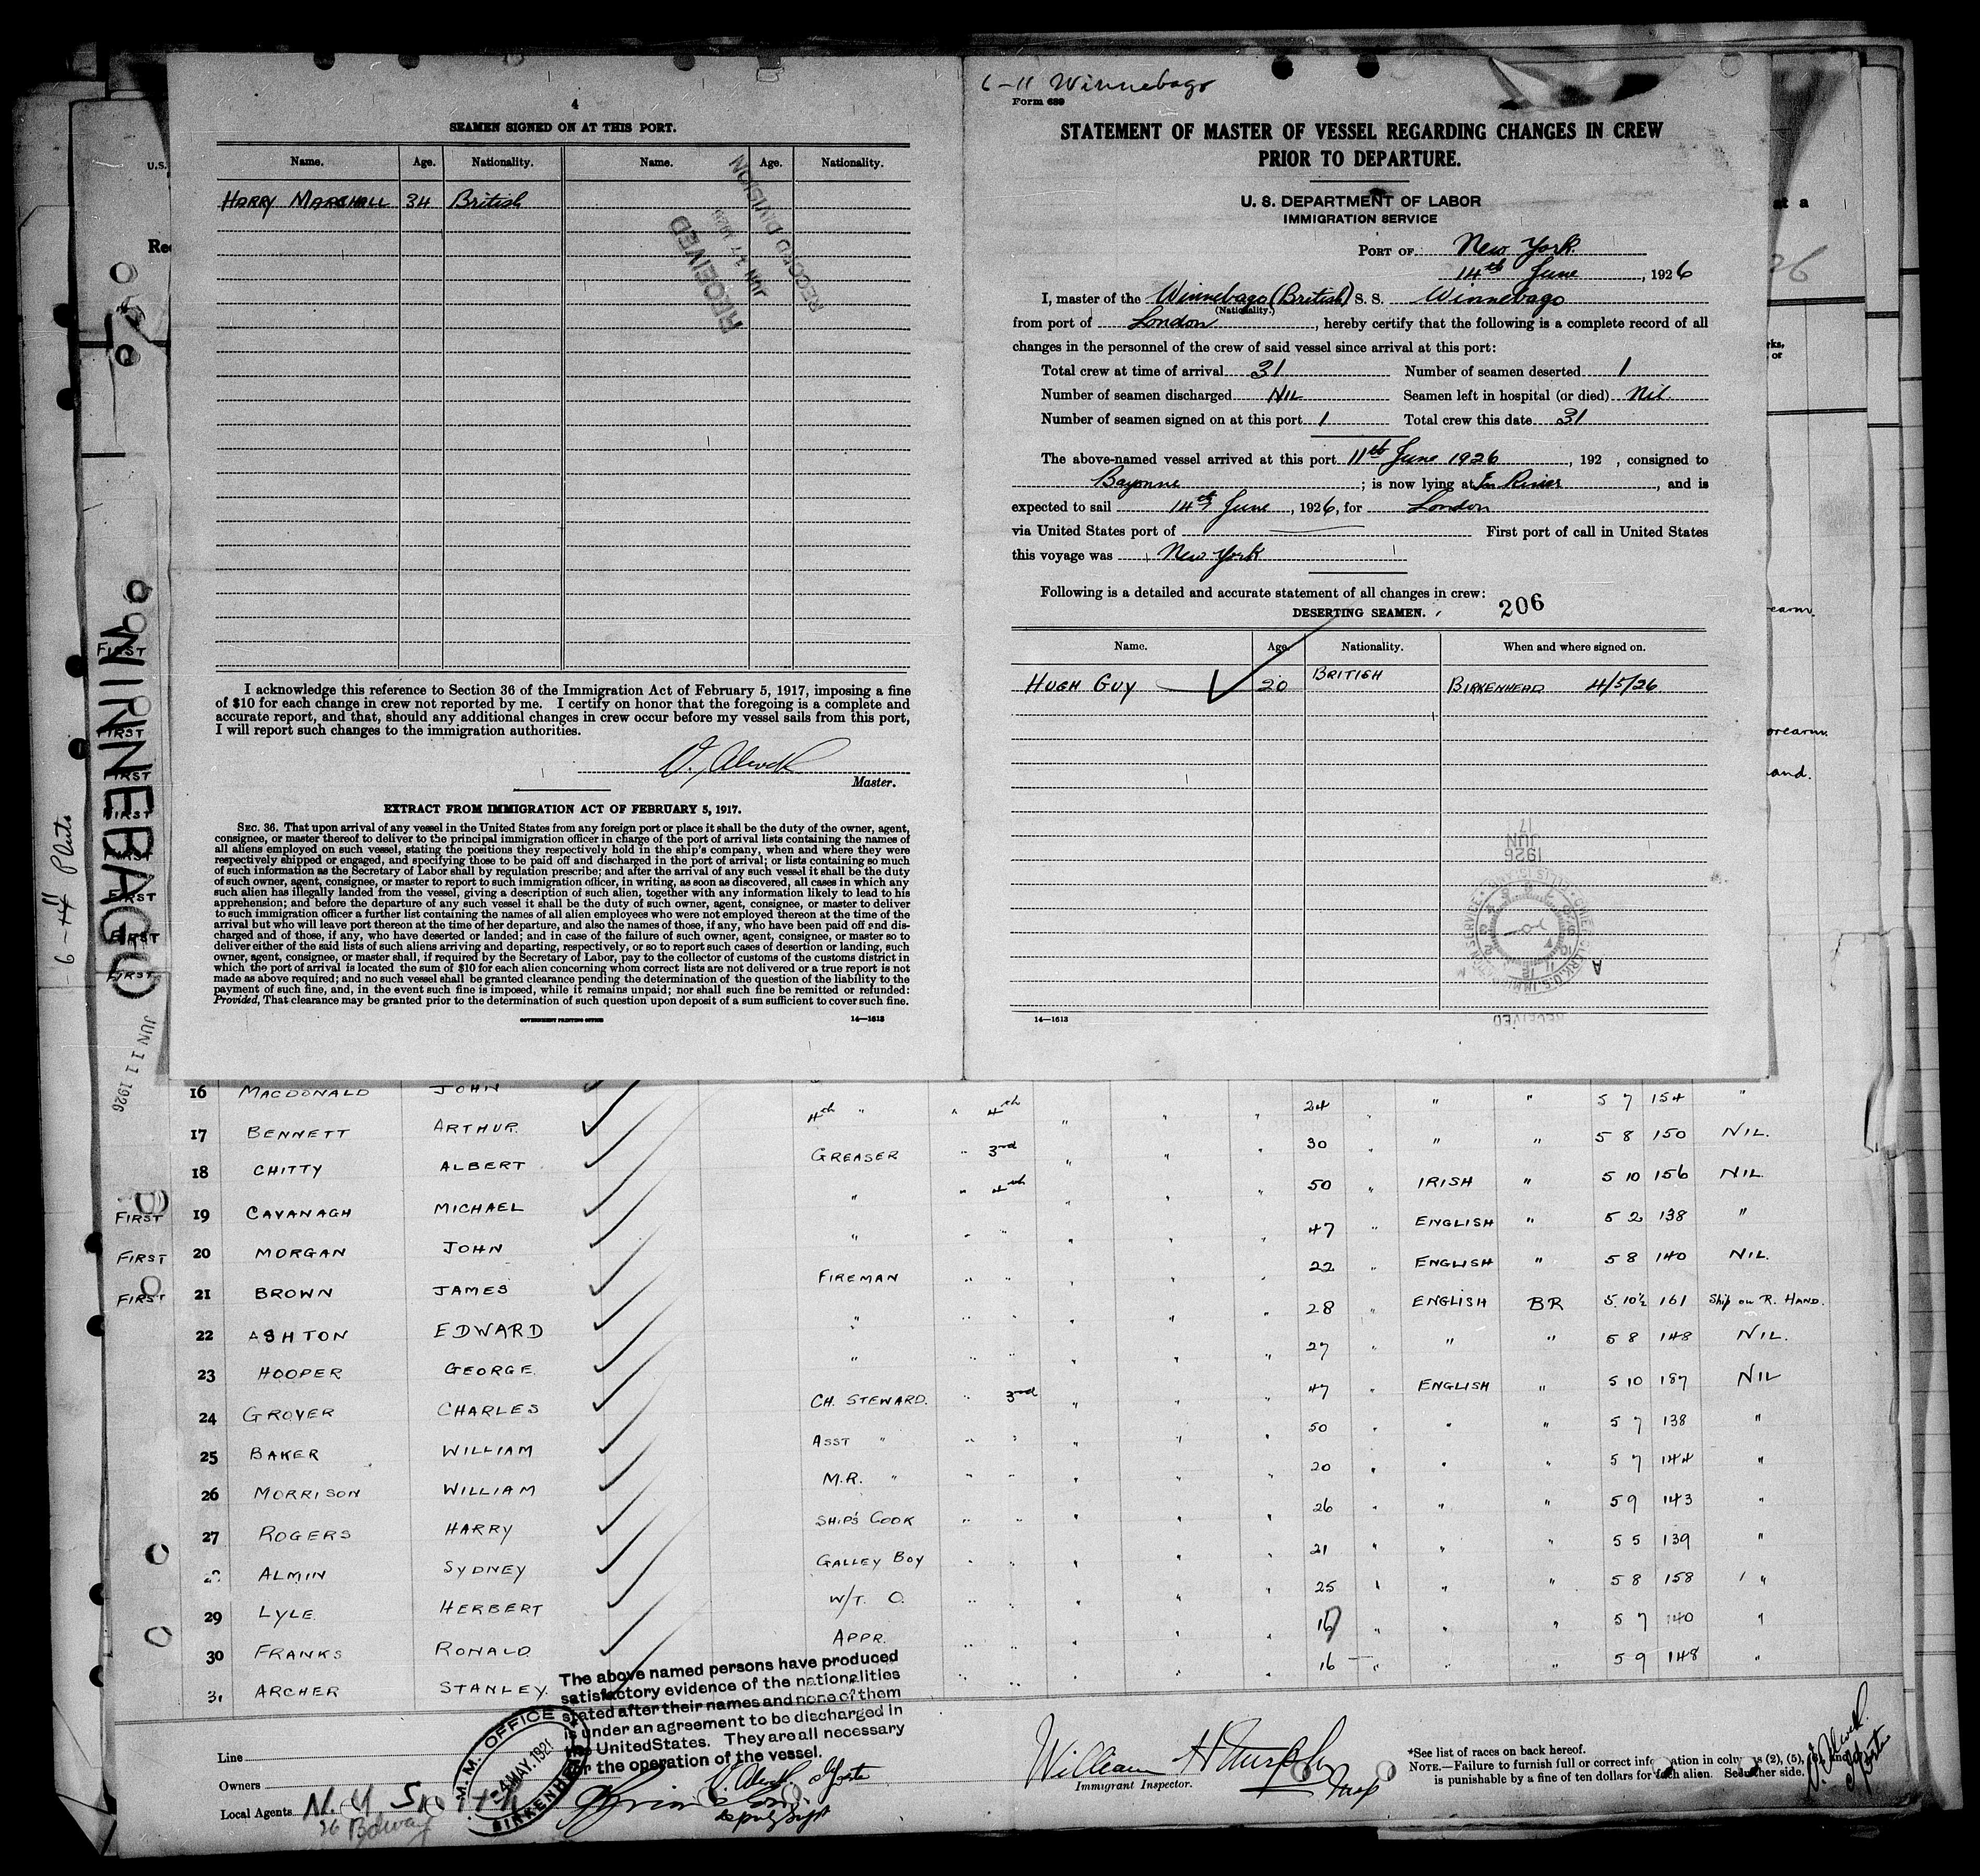 4
SEAMEN SIGNED ON AT THIS PORT.
Name. Age. Nationality. Name. Age. Nationality.
HARRY MARSHALL 34 British
RECEIVED
JUN 17 1926
RECORD DIVISION
I acknowledge this reference to Section 36 of the Immigration Act of February 5, 1917, imposing a fine
of $10 for each change in crew not reported by me. I certify on honor that the foregoing is a complete and
accurate report, and that, should any additional changes in crew occur before my vessel sails from this port,
I will report such changes to the immigration authorities.
Master.
EXTRACT FROM IMMIGRATION ACT OF FEBRUARY 5, 1917.
SEC. 36. That upon arrival of any vessel in the United States from any foreign port or place it shall be the duty of the owner, agent,
consignee, or master thereof to deliver to the principal immigration officer in charge of the port of arrival lists containing the names of
all aliens employed on such vessel, stating the positions they respectively hold in the ship's company, when and where they were
respectively shipped or engaged, and specifying those to be paid off and discharged in the port of arrival; or lists containing so much
of such information as the Secretary of Labor shall by regulation prescribe; and after the arrival of any such vessel it shall be the duty
of such owner, agent, consignee, or master to report to such immigration officer, in writing, as soon as discovered, all cases in which any
such alien has illegally landed from the vessel, giving a description of such alien, together with any information likely to lead to his
apprehension; and before the departure of any such vessel it shall be the duty of such owner, agent, consignee, or master to deliver
to such immigration officer a further list containing the names of all alien employees who were not employed thereon at the time of the
arrival but who will leave port thereon at the time of her departure, and also the names of those, if any, who have been paid off and dis-
charged and of those, if any, who have deserted or landed; and in case of the failure of such owner, agent, consignee, or master so to
deliver either of the said lists of such aliens arriving and departing, respectively, or so to report such cases of desertion or landing, such
owner, agent, consignee, or master shall, if required by the Secretary of Labor, pay to the collector of customs of the customs district in
which the port of arrival is located the sum of $10 for each alien concerning whom correct lists are not delivered or a true report is not
made as above required; and no such vessel shall be granted clearance pending the determination of the question of the liability to the
payment of such fine, and, in the event such fine is imposed, while it remains unpaid; nor shall such fine be remitted or refunded:
Provided, That clearance may be granted prior to the determination of such question upon deposit of a sum sufficient to cover such fine.
GOVERNMENT PRINTING OFFICE 14—1613
6-11 Winnebago
Form 689
STATEMENT OF MASTER OF VESSEL REGARDING CHANGES IN CREW
PRIOR TO DEPARTURE.
U. S. DEPARTMENT OF LABOR
IMMIGRATION SERVICE
PORT OF New York
14th June, 1926
I, master of the Winnebago (British) S. S. Winnebago
(Nationality.)
from port of London, hereby certify that the following is a complete record of all
changes in the personnel of the crew of said vessel since arrival at this port:
Total crew at time of arrival 31 Number of seamen deserted 1
Number of seamen discharged NIL Seamen left in hospital (or died) Nil.
Number of seamen signed on at this port 1 Total crew this date 31
The above-named vessel arrived at this port 11th June 1926, 192 , consigned to
Bayonne; is now lying at In River, and is
expected to sail 14th June, 1926, for London
via United States port of First port of call in United States
this voyage was New York
Following is a detailed and accurate statement of all changes in crew:
DESERTING SEAMEN. 206
Name. Age. Nationality. When and where signed on.
HUGH GUY 20 BRITISH BIRKENHEAD 4/5/26
JUN 17
1926
RECEIVED
14—1613
WINNEBAGO
JUN 11 1926
16 MACDONALD JOHN 4th " " 4th " " " 24 " " " 5 7 154 "
17 BENNETT ARTHUR. GREASER " 3rd " " " 30 " " " 5 8 150 NIL.
18 CHITTY ALBERT " " 4th " " " 50 " IRISH " 5 10 156 NIL.
FIRST 19 CAVANAGH MICHAEL " " " " " " 47 " ENGLISH " 5 2 138 "
FIRST 20 MORGAN JOHN FIREMAN " " " " " 22 " ENGLISH " 5 8 140 NIL.
FIRST 21 BROWN JAMES " " " " " " 28 " ENGLISH BR 5 10½ 161 Ship on R. HAND.
22 ASHTON EDWARD " " " " " " 27 " " " 5 8 148 NIL.
23 HOOPER GEORGE. CH. STEWARD. " 3rd " " " 47 " ENGLISH " 5 10 187 NIL
24 GROVER CHARLES ASST " " " " " " 50 " " " 5 7 138 "
25 BAKER WILLIAM M.R. " " " " " " 20 " " " 5 7 144 "
26 MORRISON WILLIAM SHIP'S COOK " " " " " 26 " " " 5 9 143 "
27 ROGERS HARRY GALLEY BOY " " " " " 21 " " " 5 5 139 "
ALMIN SYDNEY W/T. O. " " " " " 25 " " " 5 8 158 "
29 LYLE HERBERT APPR. " " " " " 16 " " " 5 7 140 "
30 FRANKS RONALD " " " " " 16 " " " 5 9 148 "
31 ARCHER STANLEY.
The above named persons have produced
satisfactory evidence of the nationalities
stated after their names and none of them
is under an agreement to be discharged in
the United States. They are all necessary
for the operation of the vessel.
M. M. OFFICE
4 MAY. 192
BIRKENHEAD
Line
Owners
Local Agents
Deputy Supt
William H Murphy
Immigrant Inspector. Insp
*See list of races on back hereof.
NOTE.—Failure to furnish full or correct information in columns (2), (5), (6), and
is punishable by a fine of ten dollars for each alien. See other side.